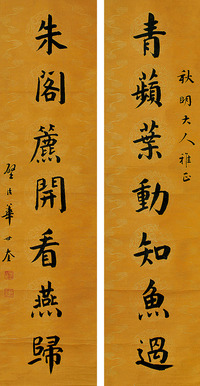 青蘋葉動知魚過
秋明大人雅正
朱閣簾開看燕歸
壁臣華世奎